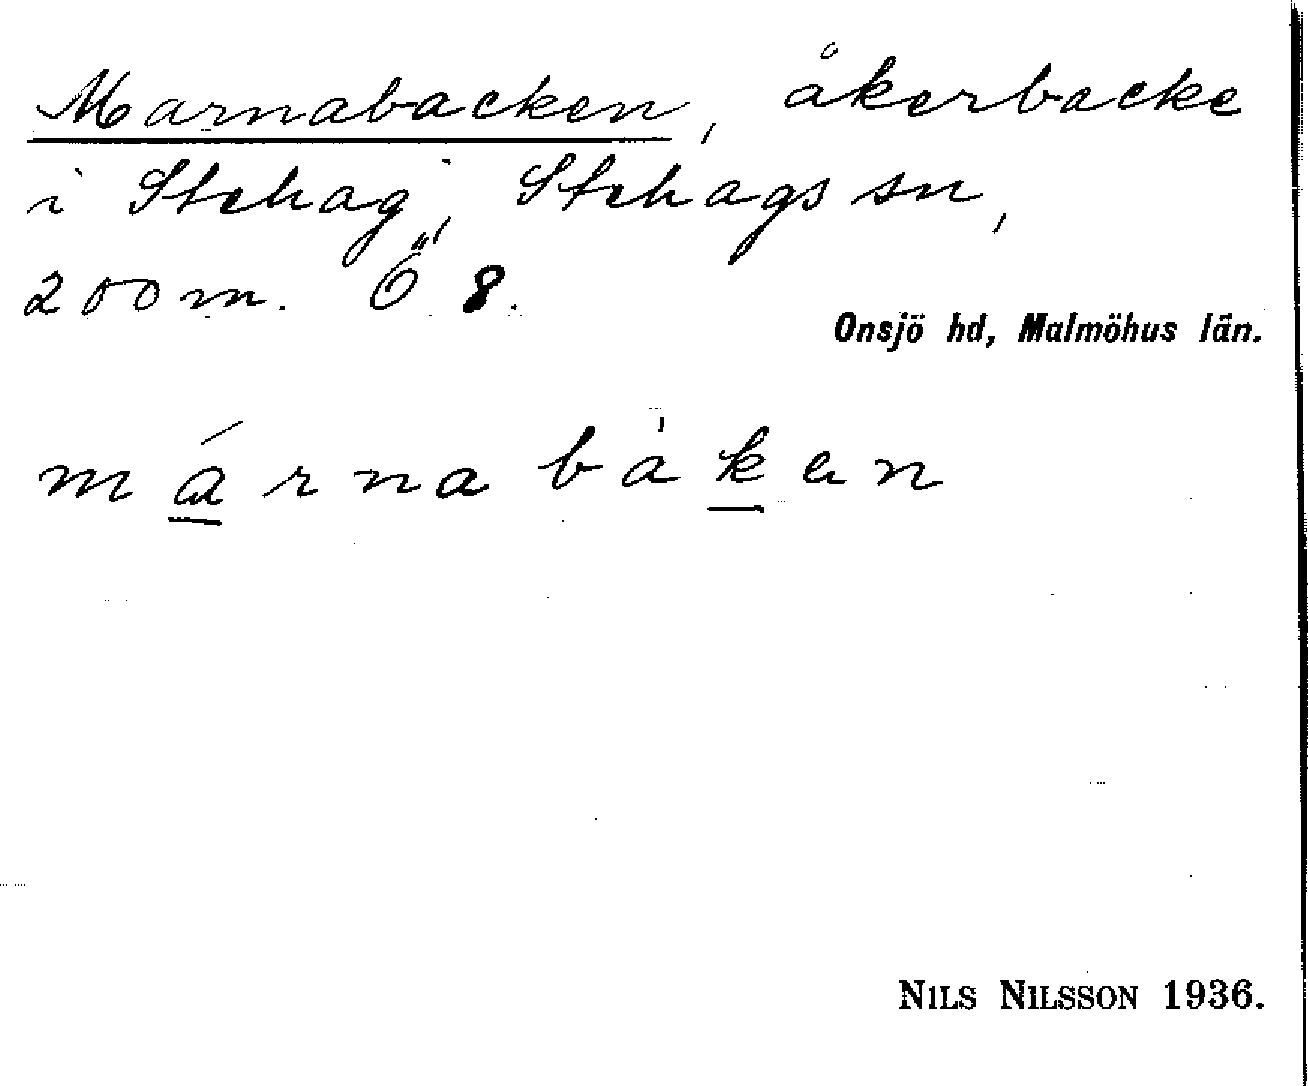 Marnabacken, åkerbacke
i Stehag, Stehags sn,
200 m. Ö 8.
Onsjö hd, Malmöhus län.
márna bàken
NILS NILSSON 1936.